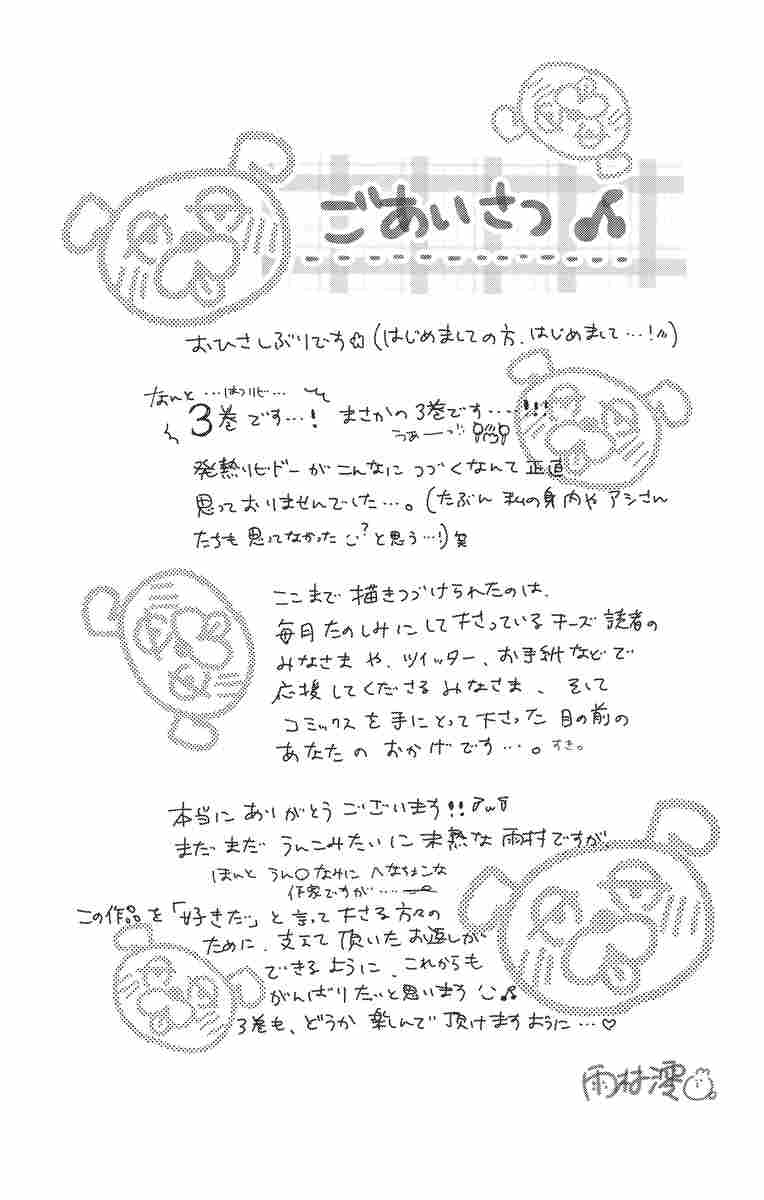 ごあいさつ♪
おひさしぶりです☆(はじめましての方、はじめまして…!)
なんと
3巻です…! まさかの3巻です…!!!
うあーっ
発熱リビドーがこんなにつづくなんて正直
思っておりませんでした…。(たぶん私の身内やアシさん
たちも思ってなかった?と思う…!)笑
ここまで描きつづけられたのは、
毎月たのしみにして下さっているチーズ読者の
みなさまや、ツイッター、お手紙などで
応援してくださるみなさま、そして
コミックスを手にとって下さった目の前の
あなたのおかげです…。すき。
本当にありがとうございます!!
まだまだうんこみたいに未熟な雨村ですが、
ほんとうん○なみにへなちょこな
作家ですが……
この作品を「好きだ」と言って下さる方々の
ために、支えて頂いたお返しが
できるように、これからも
がんばりたいと思います♪
3巻も、どうか楽しんで頂けますように…♡
雨村澪